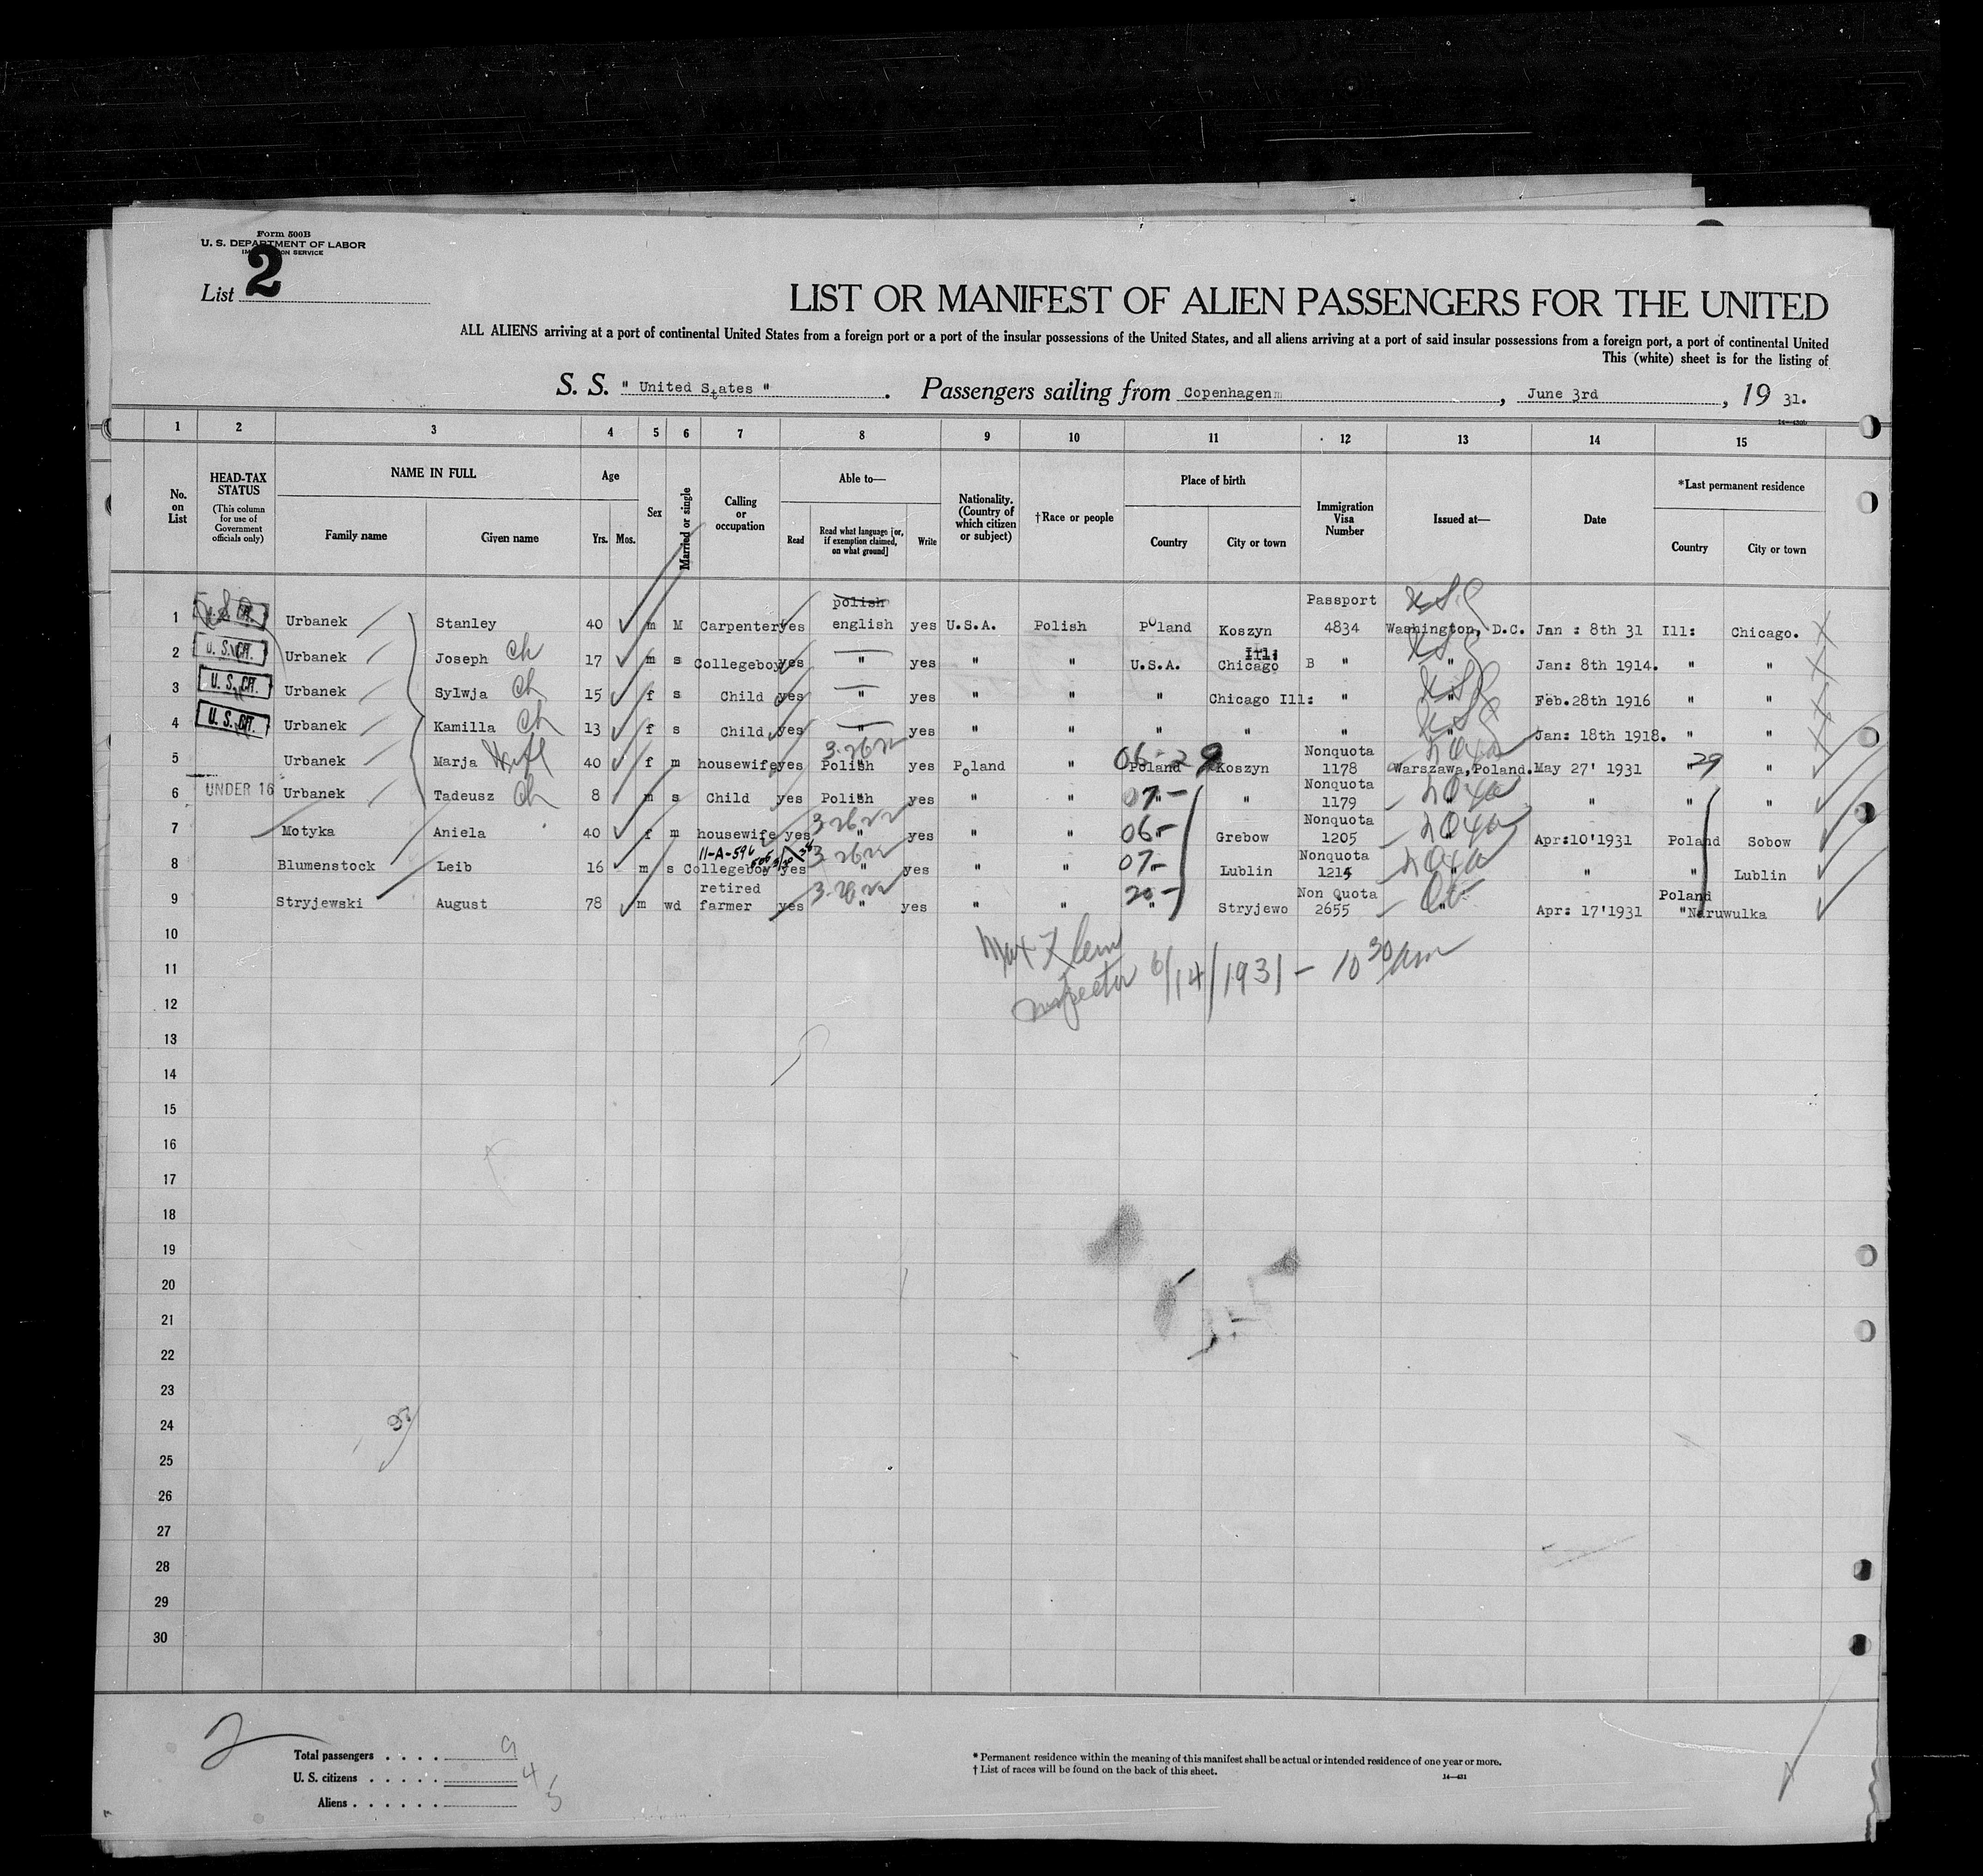 Form 500B
U. S. DEPARTMENT OF LABOR
List 2
LIST OR MANIFEST OF ALIEN PASSENGERS FOR THE UNITED
ALL ALIENS arriving at a port of continental United States from a foreign port or a port of the insular possessions of the United States, and all aliens arriving at a port of said insular possessions from a foreign port, a port of continental United
This (white) sheet is for the listing of
S. S. " United States " . Passengers sailing from Copenhagen , June 3rd , 19 31.
1 2 3 4 5 6 7 8 9 10 11 12 13 14 15
No. on List
HEAD-TAX STATUS
(This column for use of Government officials only)
NAME IN FULL
Family name Given name
Age
Yrs. Mos.
Sex
Married or single
Calling or occupation
Able to—
Read
Read what language [or, if exemption claimed, on what ground]
Write
Nationality. (Country of which citizen or subject)
†Race or people
Place of birth
Country City or town
Immigration Visa Number
Issued at—
Date
*Last permanent residence
Country City or town
polish Passport
1 U. S. CIT. Urbanek Stanley 40 m M Carpenter yes english yes U.S.A. Polish Poland Koszyn 4834 Washington, D.C. Jan : 8th 31 Ill: Chicago.
2 U. S. CIT. Urbanek Joseph Ch 17 m s Collegeboy yes " yes " " U.S.A. Chicago Ill: B " " Jan: 8th 1914. " "
3 U. S. CIT. Urbanek Sylwja Ch 15 f s Child yes " yes " " " Chicago Ill: " " Feb.28th 1916 " "
4 U. S. CIT. Urbanek Kamilla Ch 13 f s Child yes " yes " " " " " " Jan: 18th 1918. " "
3-26-22 06-29 Nonquota
5 Urbanek Marja Wife 40 f m housewife yes Polish yes Poland " Poland Koszyn 1178 Warszawa,Poland. May 27' 1931 " 29 "
Nonquota
6 UNDER 16 Urbanek Tadeusz Ch 8 m s Child yes Polish yes " " 07- " " 1179 " " " "
3-26-22 Nonquota
7 Motyka Aniela 40 f m housewife yes " yes " " 06- Grebow 1205 " Apr:10'1931 Poland Sobow
11-A-596 3-26-22 Nonquota
8 Blumenstock Leib 16 m s Collegeboy yes " yes " " 07- Lublin 1215 " " " Lublin
retired 3-26-22 Non Quota Poland
9 Stryjewski August 78 m wd farmer yes " yes " " 20- " Stryjewo 2655 " Apr: 17'1931 " Naruwulka
10
Inspector 6/14/1931 - 10 30 am
11
12
13
14
15
16
17
18
19
20
21
22
23
24
25
26
27
28
29
30
2
Total passengers . . . . 9
U. S. citizens . . . . . 4
Aliens . . . . . . 5
* Permanent residence within the meaning of this manifest shall be actual or intended residence of one year or more.
† List of races will be found on the back of this sheet.
14—431